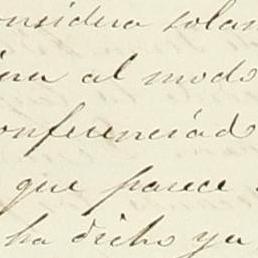 onsidera solam
era al modo
onferenciado
que parece
ha dicho ya